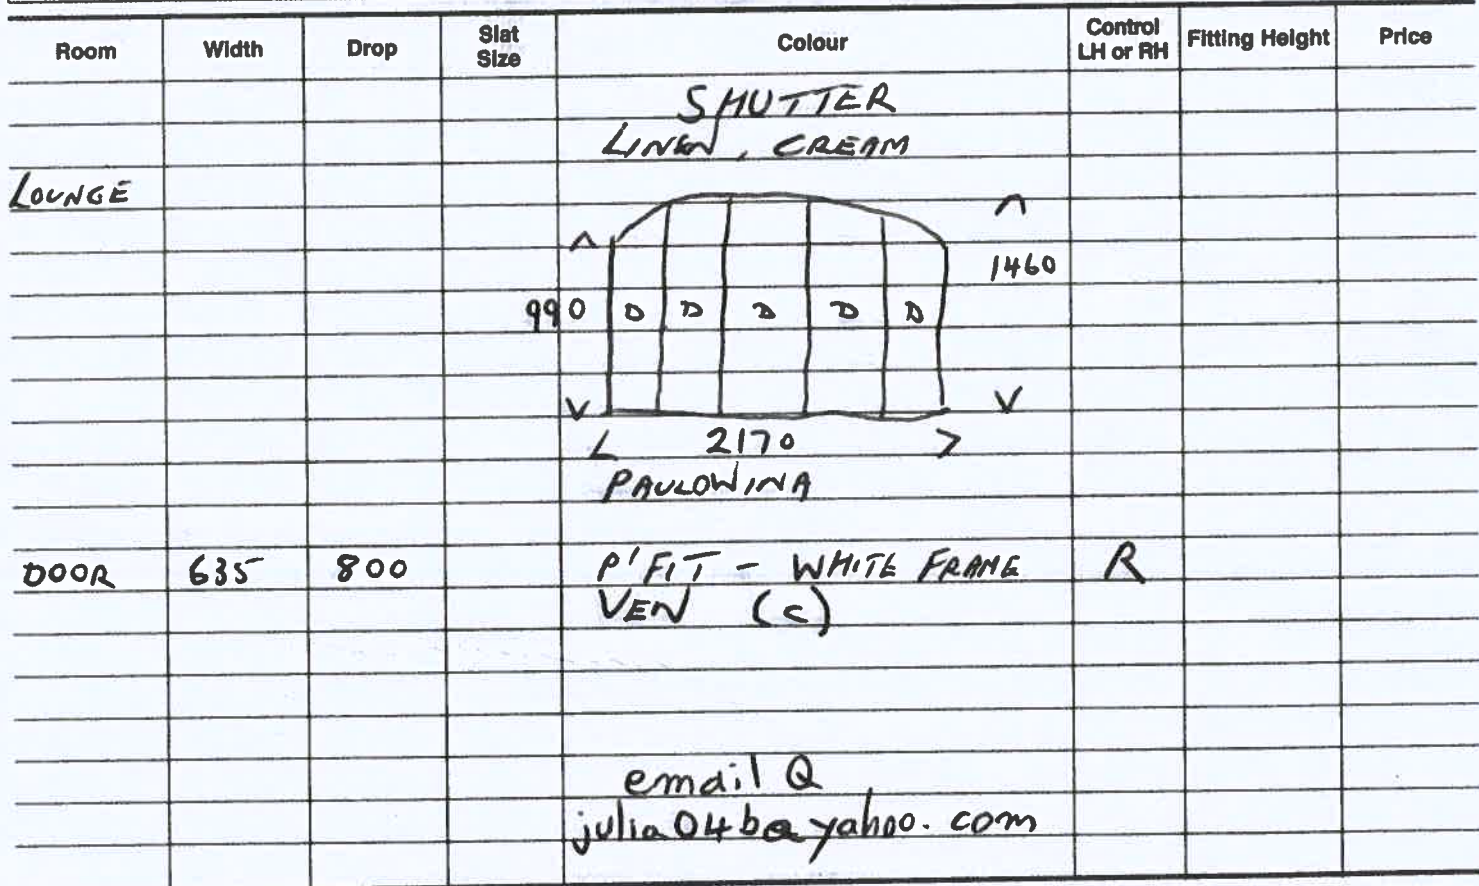 Room Width Drop Slat Size Colour Control LH or RH Fitting Height Price
SHUTTER
LINEN, CREAM
LOUNGE
1460
990 D D D D D
2170
PAULOWINA
DOOR 635 800 P'FIT - WHITE FRAME R
VEN (C)
email Q
julia04b@yahoo.com